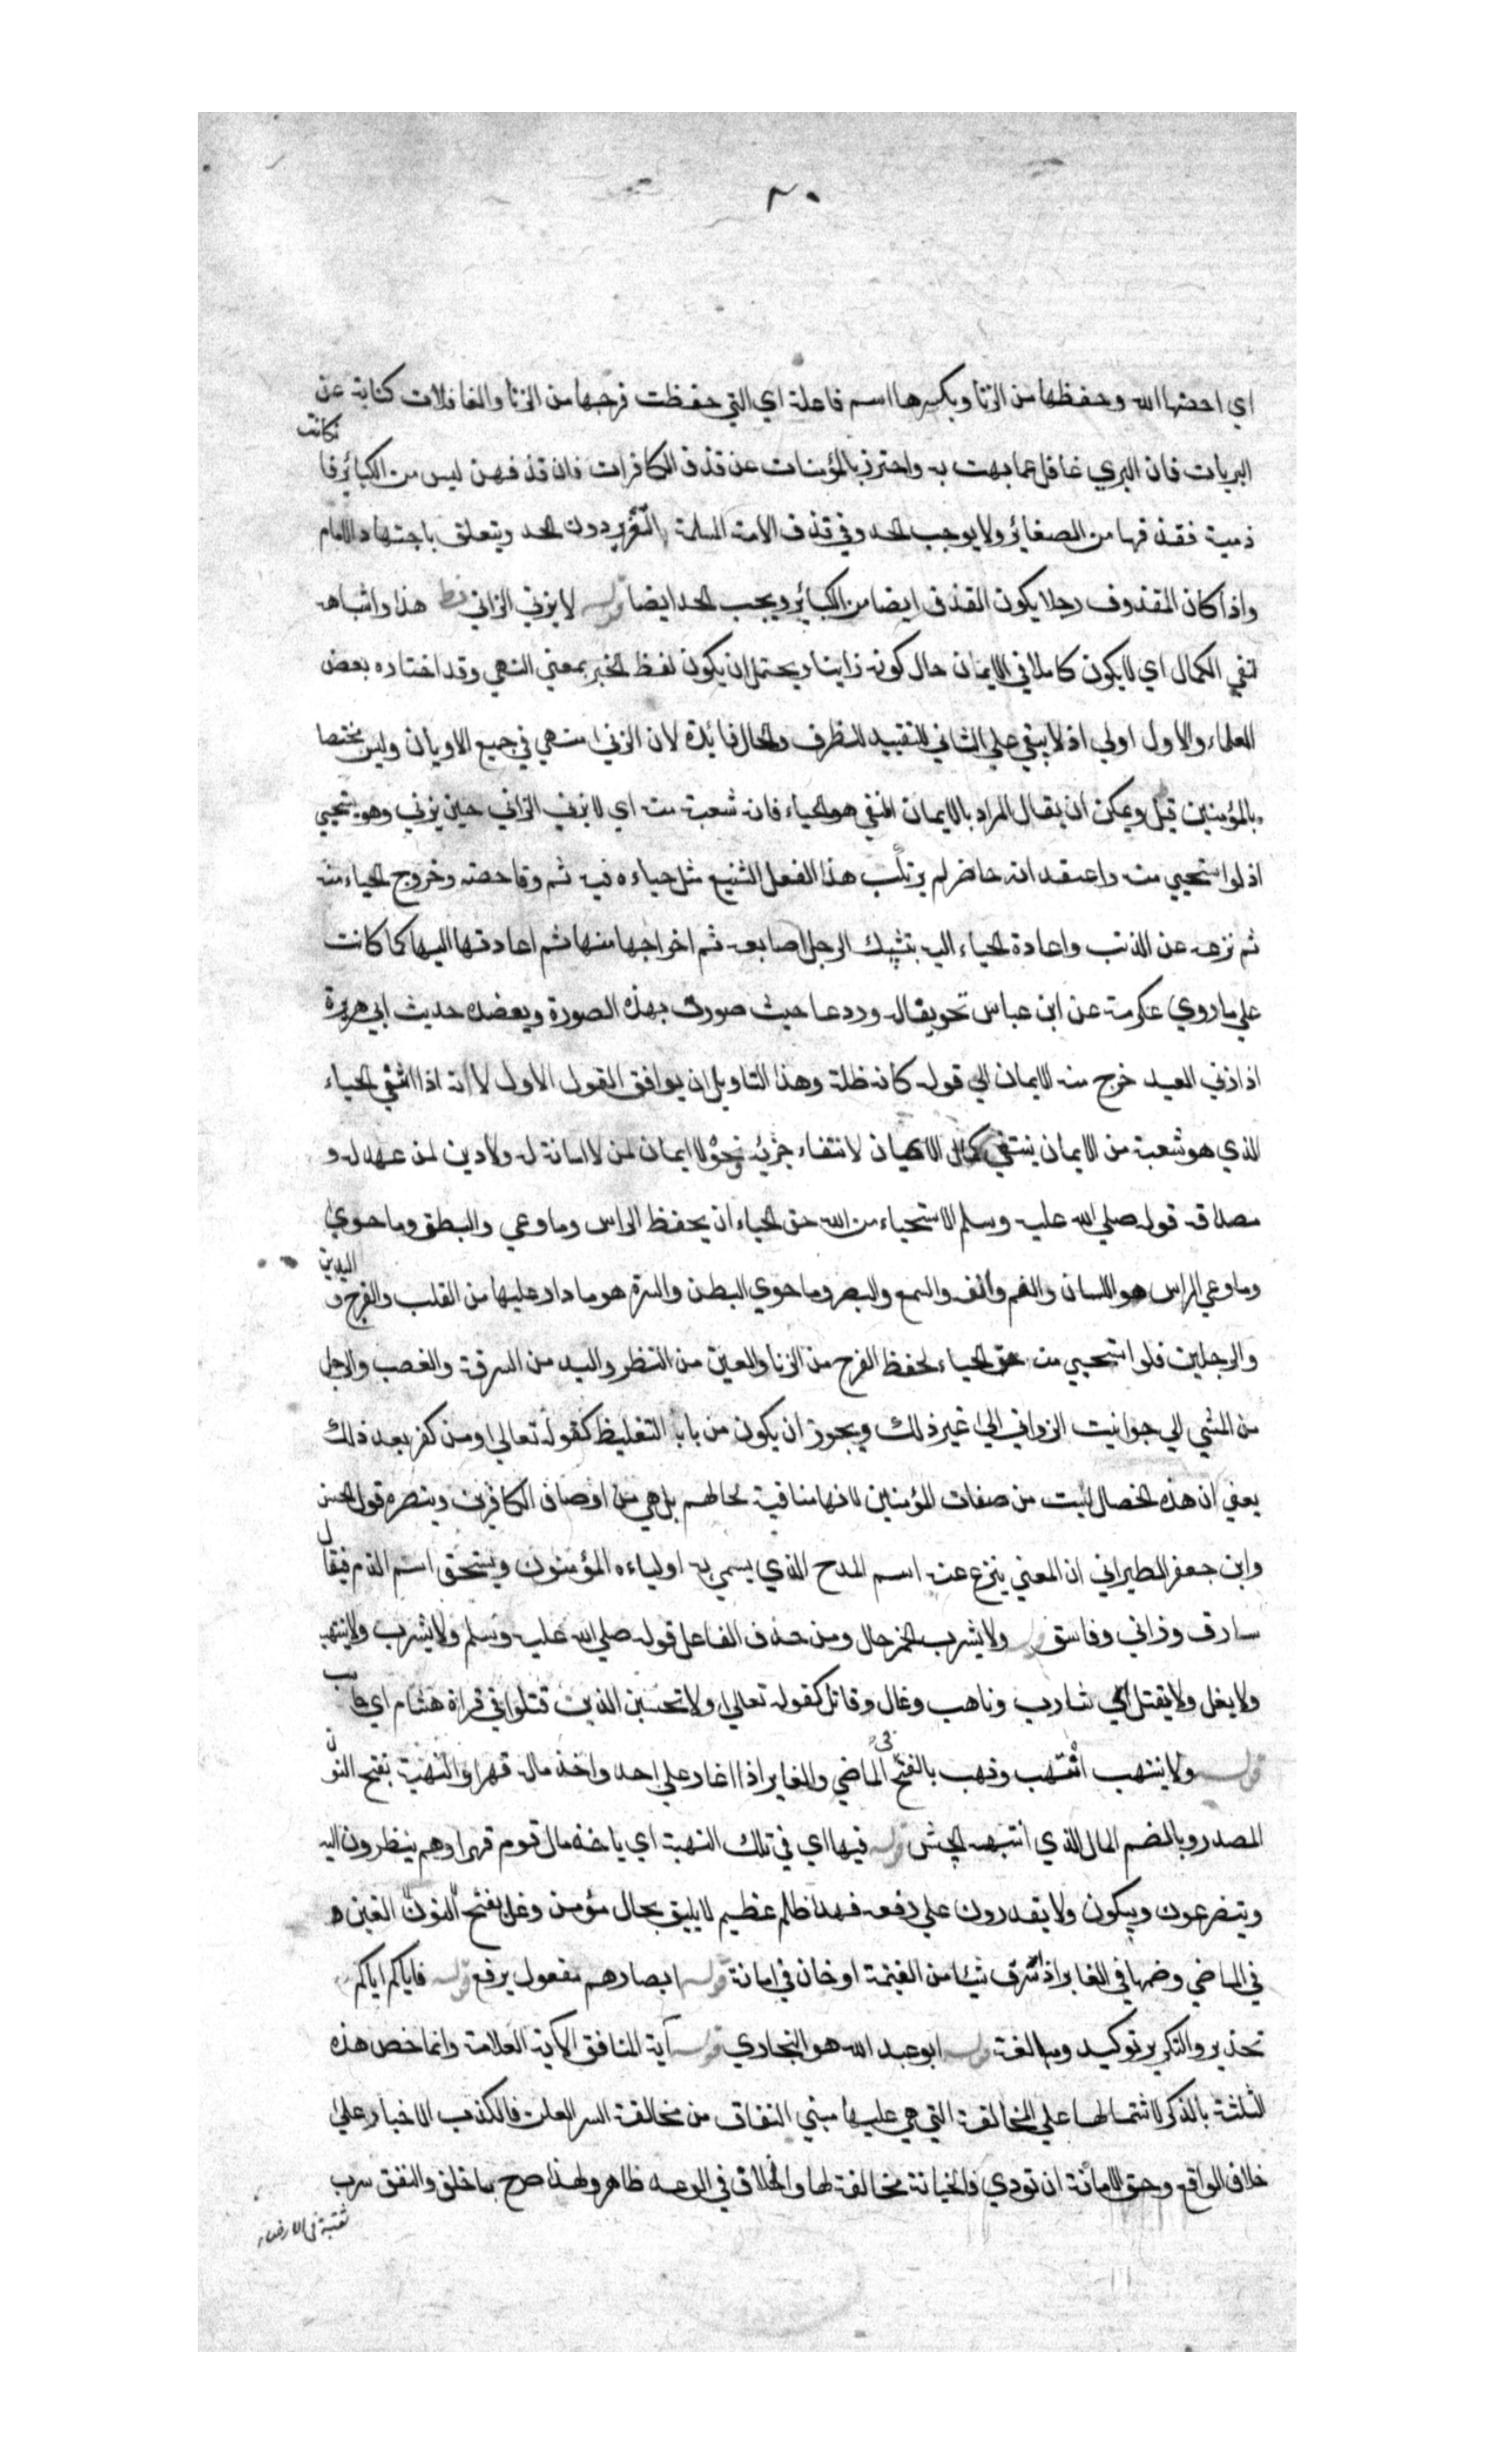 ٢٠
اي احصنها الله وحفظها من الزنا وبكسرها اسم فاعلة اي التي حفظت فرجها من الزنا والغافلات كناية عن
البريات فان البري غافل عما بهت به واحترز بالمؤمنات عن قذف الكافرات فان قذفهن ليس من الكبائر فا نكانت
ذمية فقذفها من الصغائر ولا يوجب الحد وفي قذف الامة المسلمة التعزير دون الحد ويتعلق باجتهاد الامام
واذا كان المقذوف رجلا يكون القذف ايضا من الكبائر ويجب الحد ايضا قوله لا يزني الزاني هذا واشباهه
لنفي الكمال اي لا يكون كاملا في الايمان حال كونه زانيا ويحتمل ان يكون لفظ الخبر بمعني النهي وقد اختاره بعض
العلماء والاول اولي اذ لا يبقي علي الثاني للتقييد للظرف والحال فائدة لان الزني منهي في جميع الاديان وليس مختصا
بالمؤمنين قيل ويمكن ان يقال المراد بالايمان المنفي هو الحياء فانه شعبة منه اي لا يزني الزاني حين يزني وهو يستحيي
اذ لو استحيي منه واعتقد انه حاضر لم يرتكب هذا الفعل الشنيع مثل حياءه فيه ثم وقاحته وخروج الحياء منه
ثم نزعه عن الذنب واعادة الحياء اليه بتشبيك الرجل اصابعه ثم اخراجها منها ثم اعادتها اليها كما كانت
علي ما روي عكرمة عن ابن عباس وردعا حيث صورت بهذه الصورة ويعضده حديث ابي هريرة
اذا زني العبد خرج منه الايمان الي قوله كانه ظلة وهذا التاويل ان يوافق القول الاول لا انه اذا انتفي الحياء
الذي هو شعبة من الايمان ينتفي كمال الايمان لانتفاء جزئه نحو لا ايمان لمن لا امانة له ولا دين لمن عهد له و
مصداقه قوله صلي الله عليه وسلم الاستحياء من الله حق الحياء ان يحفظ الراس وما وعي والبطن وما حوي
وما وعي الراس هو اللسان والفم وانف والسمع والبصر وما حوي البطن والسرة هو ما دار عليها من القلب والفرج و اليدين
والرجلين فلو استحيي منه حق الحياء لحفظ الفرج من الزنا والعين من النظر واليد من السرقة والغصب والرجل
من المشي الي حوانيت الزواني الي غير ذلك ويجوز ان يكون من باب التغليظ كقوله تعالي ومن كفر بعد ذلك
يعني ان هذه الخصال ليست من صفات المؤمنين لانها منافية لحالهم بل هي من اوصاف الكافرين وينصره قول الحسن
وابن جعفر الطبراني ان المعني ينزع عنه اسم المدح الذي يسمي به اولياءه المؤمنون ويستحق اسم الذم فيقال
سارق وزاني وفاسق قوله ولا يشرب الخمر حال ومن حذف الفاعل قوله صلي الله عليه وسلم ولا يشرب ولا ينتهب
ولا يغل ولا يقتل اي شارب وناهب وغال وقاتل كقوله تعالي ولا تحسبن الذين قتلوا في قراة هشام اي حاسب
قوله ولا ينتهب انتهب ونهب بالفتح في الماضي والغابر اذا اغار علي احد واخذ ماله قهرا والنهبة بفتح النون
المصدر وبالضم المال الذي انتهبه الجيش قوله فيها اي في تلك النهبة اي ياخذ مال قوم قهرا وهم ينظرون اليه
ويتضرعون ويبكون ولا يقدرون علي دفعه فهذا ظلم عظيم لا يليق بحال مؤمن وغل بفتح النون الغين
في الماضي وضمها في الغابر اذ سرق شيئا من الغنيمة او خان في امانة قوله ابصارهم مفعول يرفع قوله فاياكم اياكم
تحذير والتكرير توكيد ومبالغة قوله ابو عبد الله هو البخاري قوله آية المنافق الآية العلامة وانما خص هذه
الثلثة بالذكر لاشتمالها علي المخالفة التي هي عليها مبني النفاق من مخالفة السر العلن فالكذب الاخبار علي
خلاف الواقع وحق الامانة ان تودي فالخيانة مخالفة لها والخلاف في الوعد ظاهر ولهذا صرح بما خلف والنفق سرب
نقبة في الارض